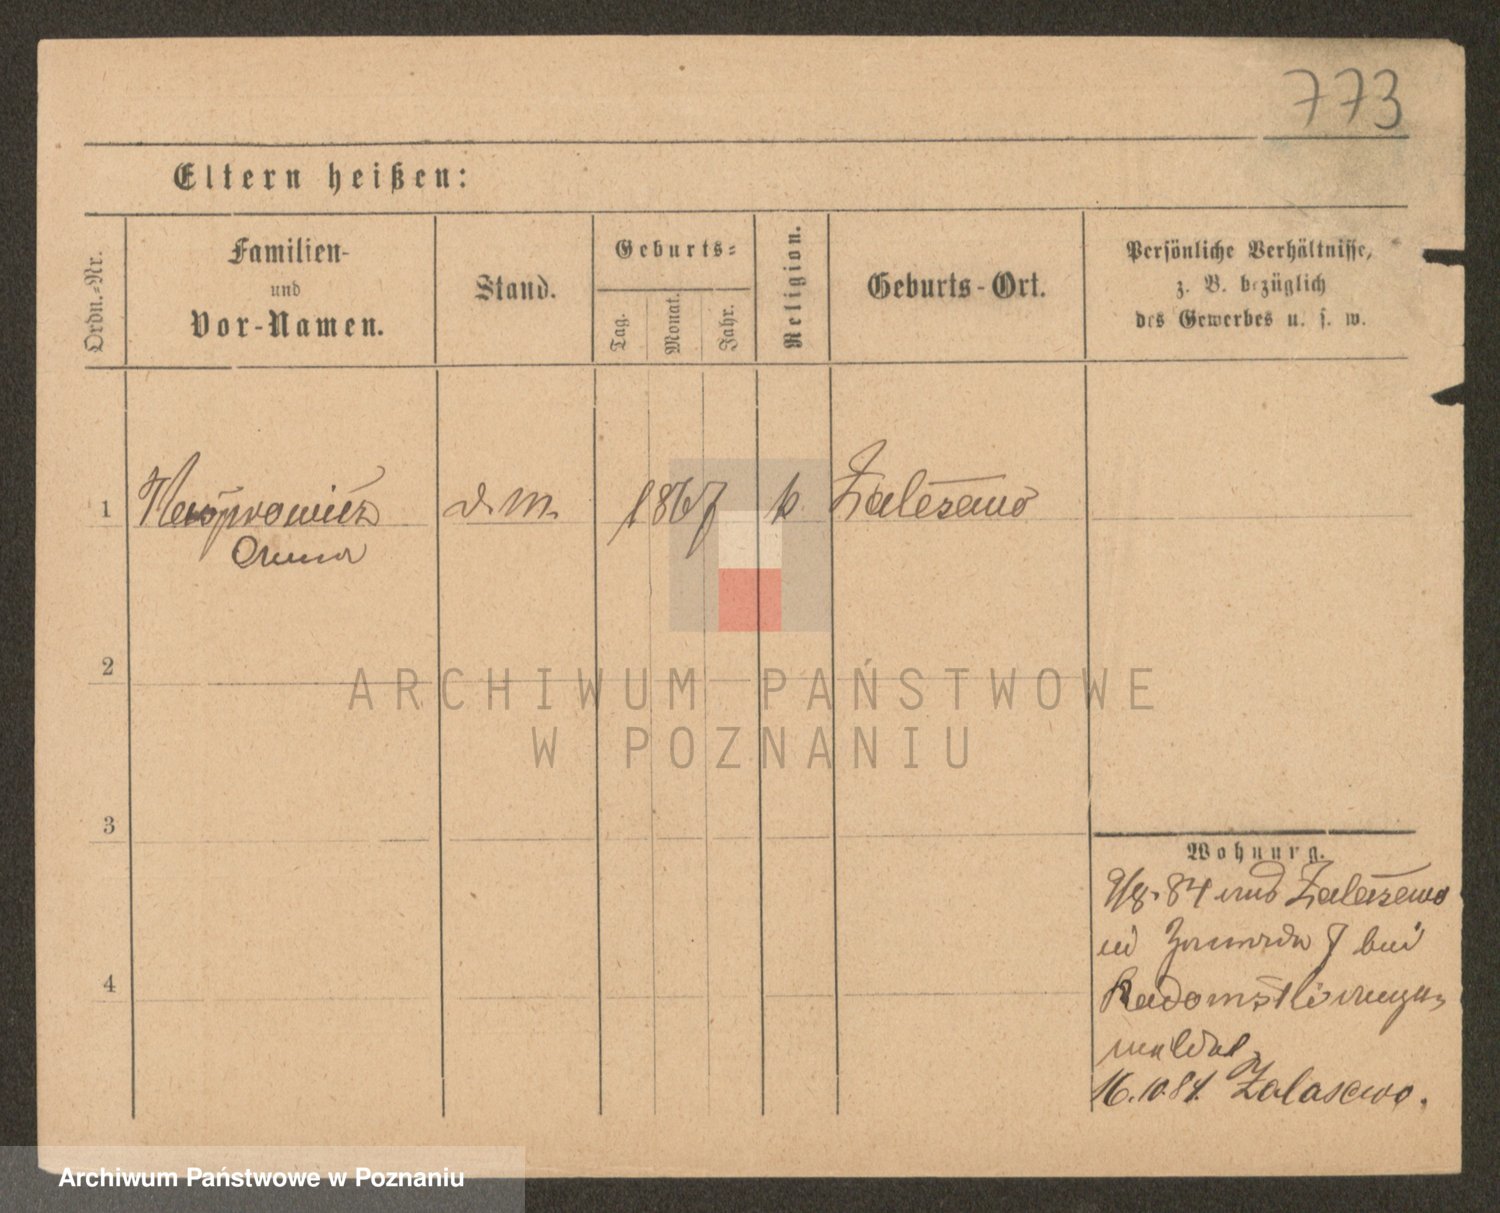 773
Eltern heißen:
Ordn.-Nr.
Familien-
und
Vor-Namen.
Stand.
Geburts-
Tag.
Monat.
Jahr.
Religion.
Geburts-Ort.
Persönliche Verhältnisse,
z. B. bezüglich
des Gewerbes u. s. w.
1
d. M.
1867
k
Zalesewo
2
ARCHIWUM PAŃSTWOWE
W POZNANIU
3
Wohnung.
9/8. 84 Zalasewo
in bei
4
16.10.84. Zalasewo.
Archiwum Państwowe w Poznaniu